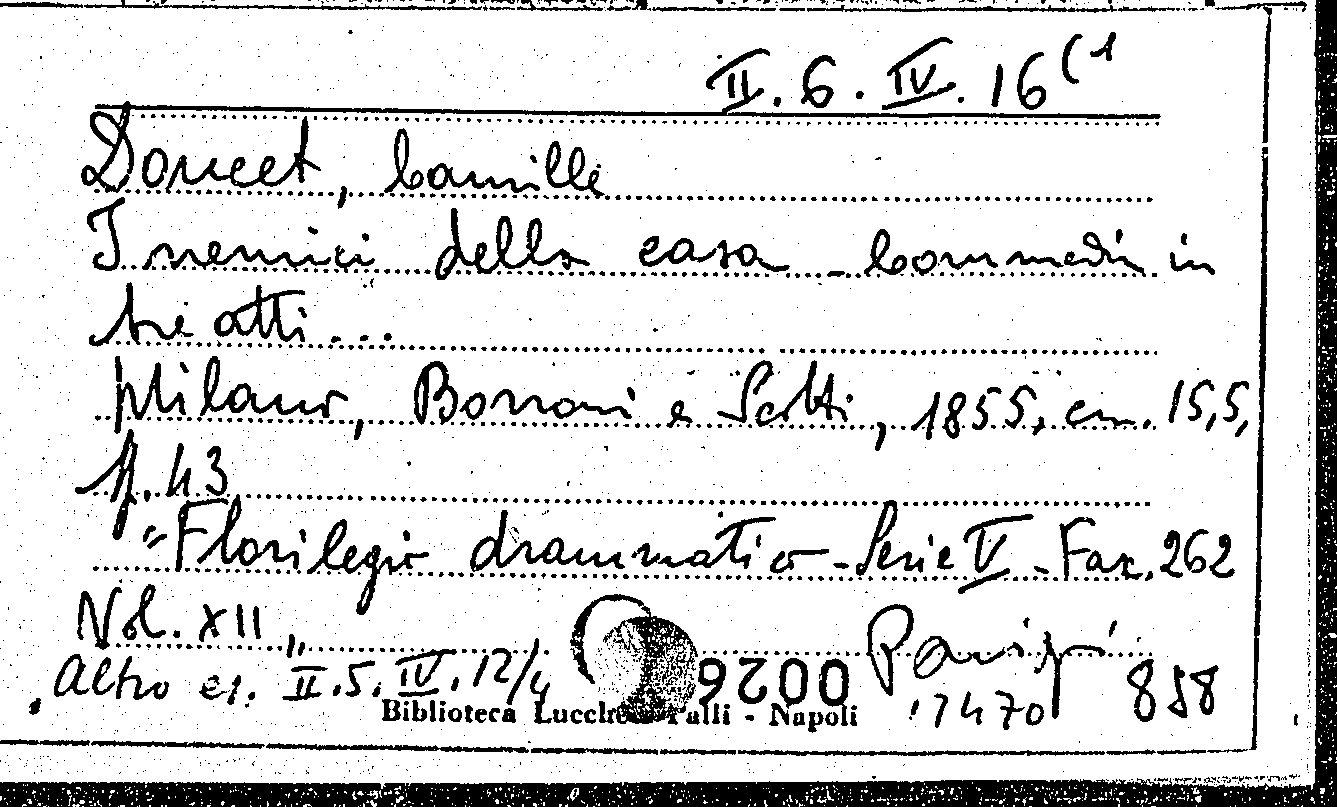 II.6.IV.16(1
Doucet, Camille
I nemici della casa - Commedia in
tre atti...
Milano, Borroni e Scotti, 1855, cm. 15,5,
p. 43
"Florilegio drammatico - Serie V - Fax. 262
Vol. XII"
Altro es. II.5.IV.12/4
0026
858
Biblioteca Lucchesi Palli - Napoli